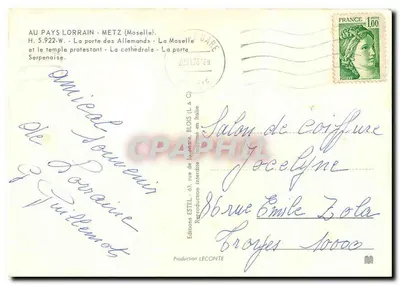 AU PAYS LORRAIN - METZ (Moselle)
H. 5.922-W. - La porte des Allemands - La Moselle
et le temple protestant - La cathédrale - La porte
Serpenoise.
GARE
FRANCE
1,00
amical souvenir
de Lorraine
G Guillemot
Editions ESTEL - BLOIS (L. & C.)
Reproduction interdite
CPAPHIL
Salon de Coiffure
Jocelyne
86 rue Emile Zola
Troyes 10000
Production LECONTE